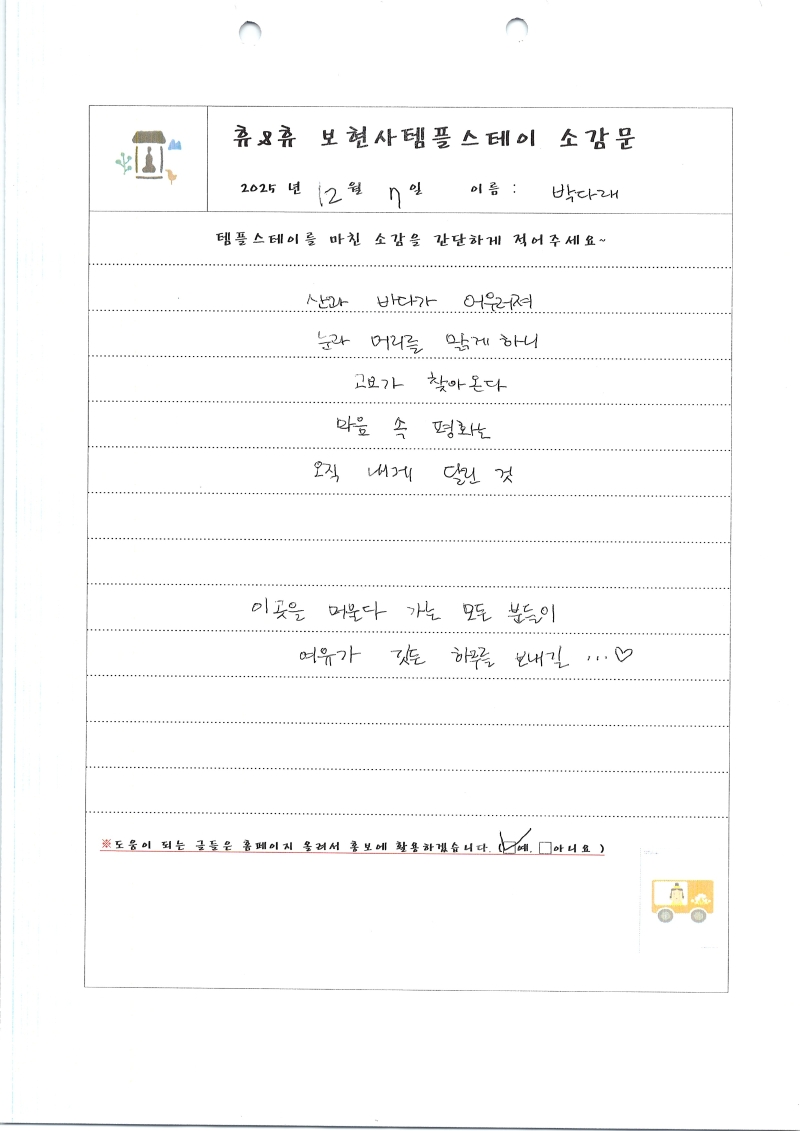 휴&휴 보현사템플스테이 소감문
2025 년 12 월 7 일 이름 : 박다래
템플스테이를 마친 소감을 간단하게 적어주세요~
산과 바다가 어우러져
눈과 머리를 맑게 하니
고요가 찾아온다
마음 속 평화는
오직 내게 달린 것
이곳을 머문다 가는 모든 분들이
여유가 깃든 하루를 보내길 ...♡
※도움이 되는 글들은 홈페이지 올려서 홍보에 활용하겠습니다. (☑예. □아니요 )